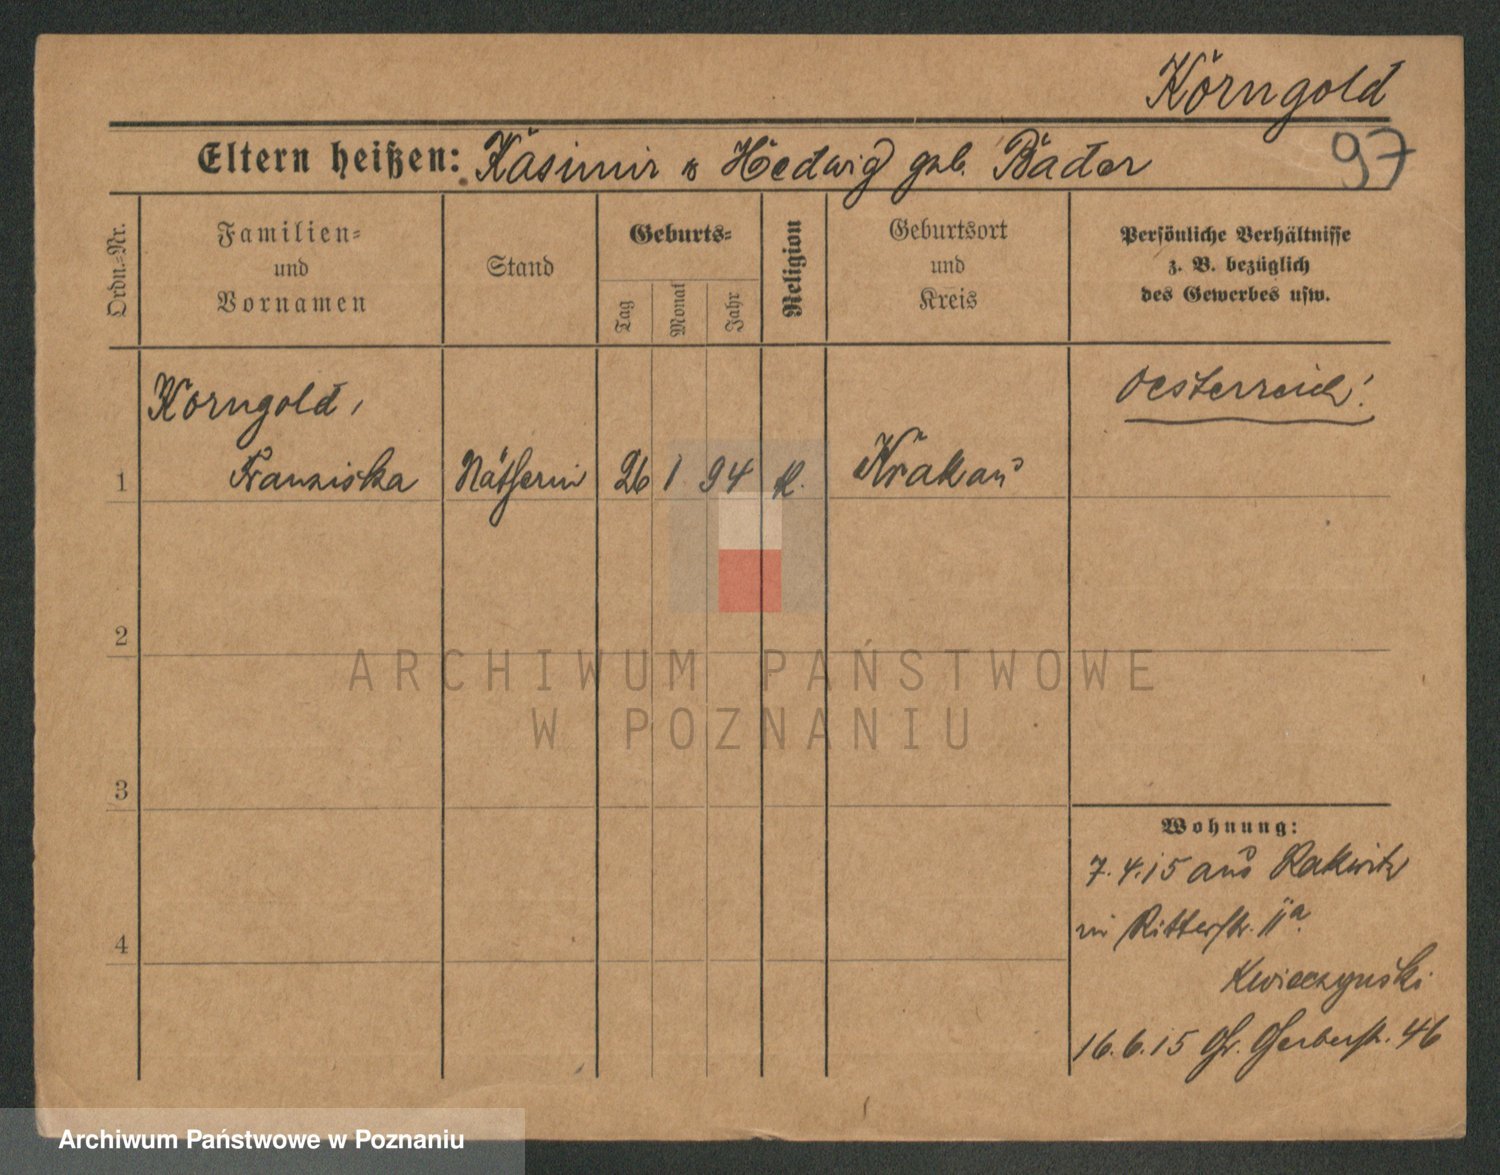 Korngold
97
Eltern heißen: Kasimir & Hedwig geb. Bader
Ordn.-Nr.
Familien-
und
Vornamen
Stand
Geburts-
Tag
Monat
Jahr
Religion
Geburtsort
und
Kreis
Persönliche Verhältnisse
z. B. bezüglich
des Gewerbes usw.
Korngold,
Oesterreich!
1 Franziska Nätherin 26 1 94 k. Krakau
2
ARCHIWUM PAŃSTWOWE
W POZNANIU
3
Wohnung:
7.4.15 aus Rakwitz
in Ritterstr. 11a.
4
Kwieczynski
16.6.15 Gr. Gerberstr. 46
Archiwum Państwowe w Poznaniu